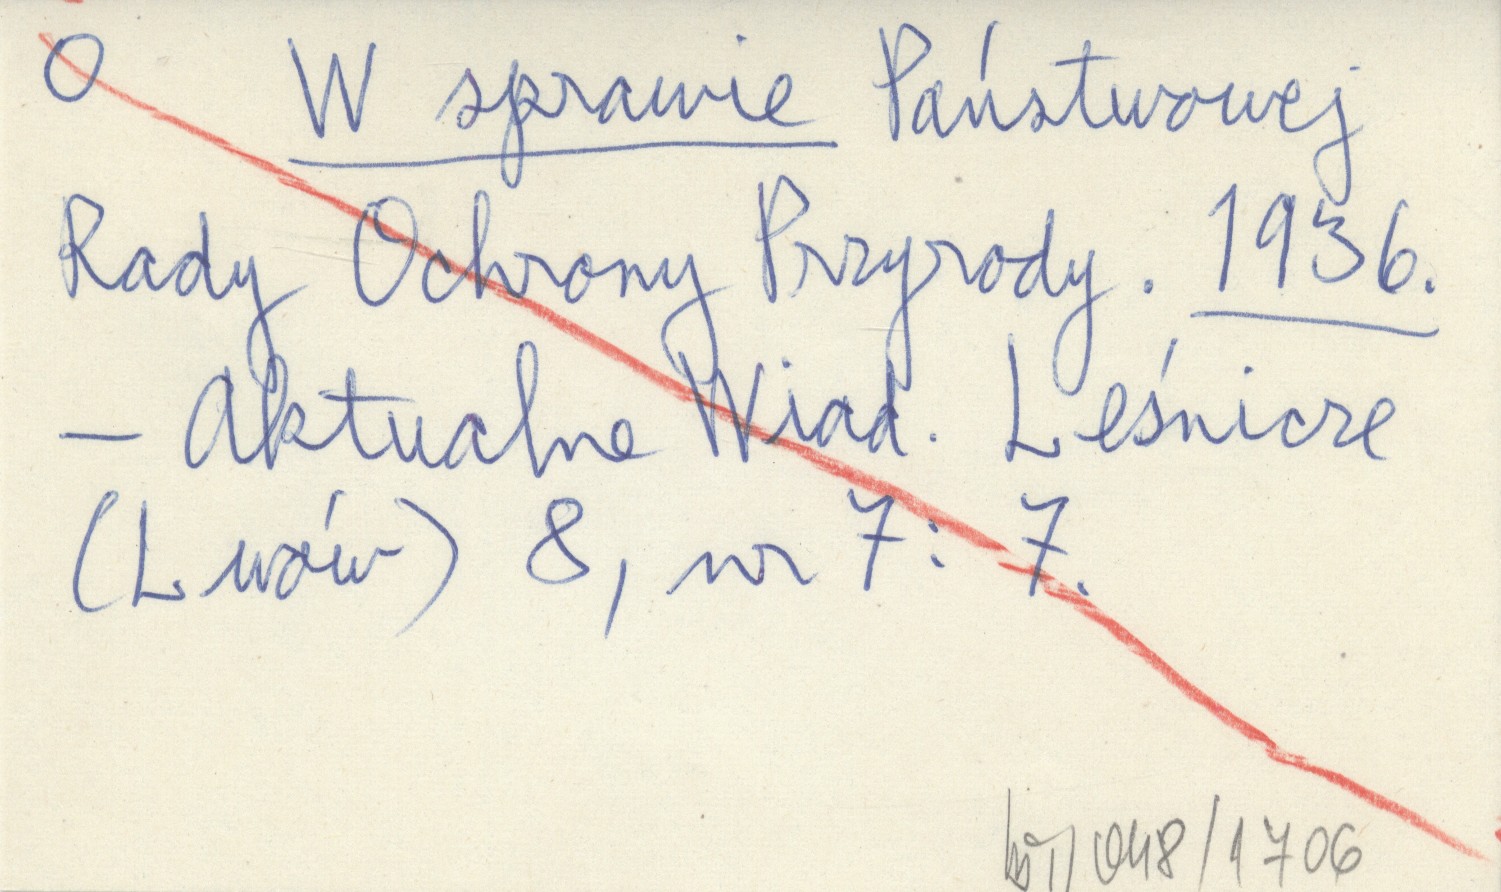 O W sprawie Państwowej
Rady Ochrony Przyrody. 1936.
— Aktualne Wiad. Leśnicze
(Lwów) 8, nr 7: 7.
048/1706